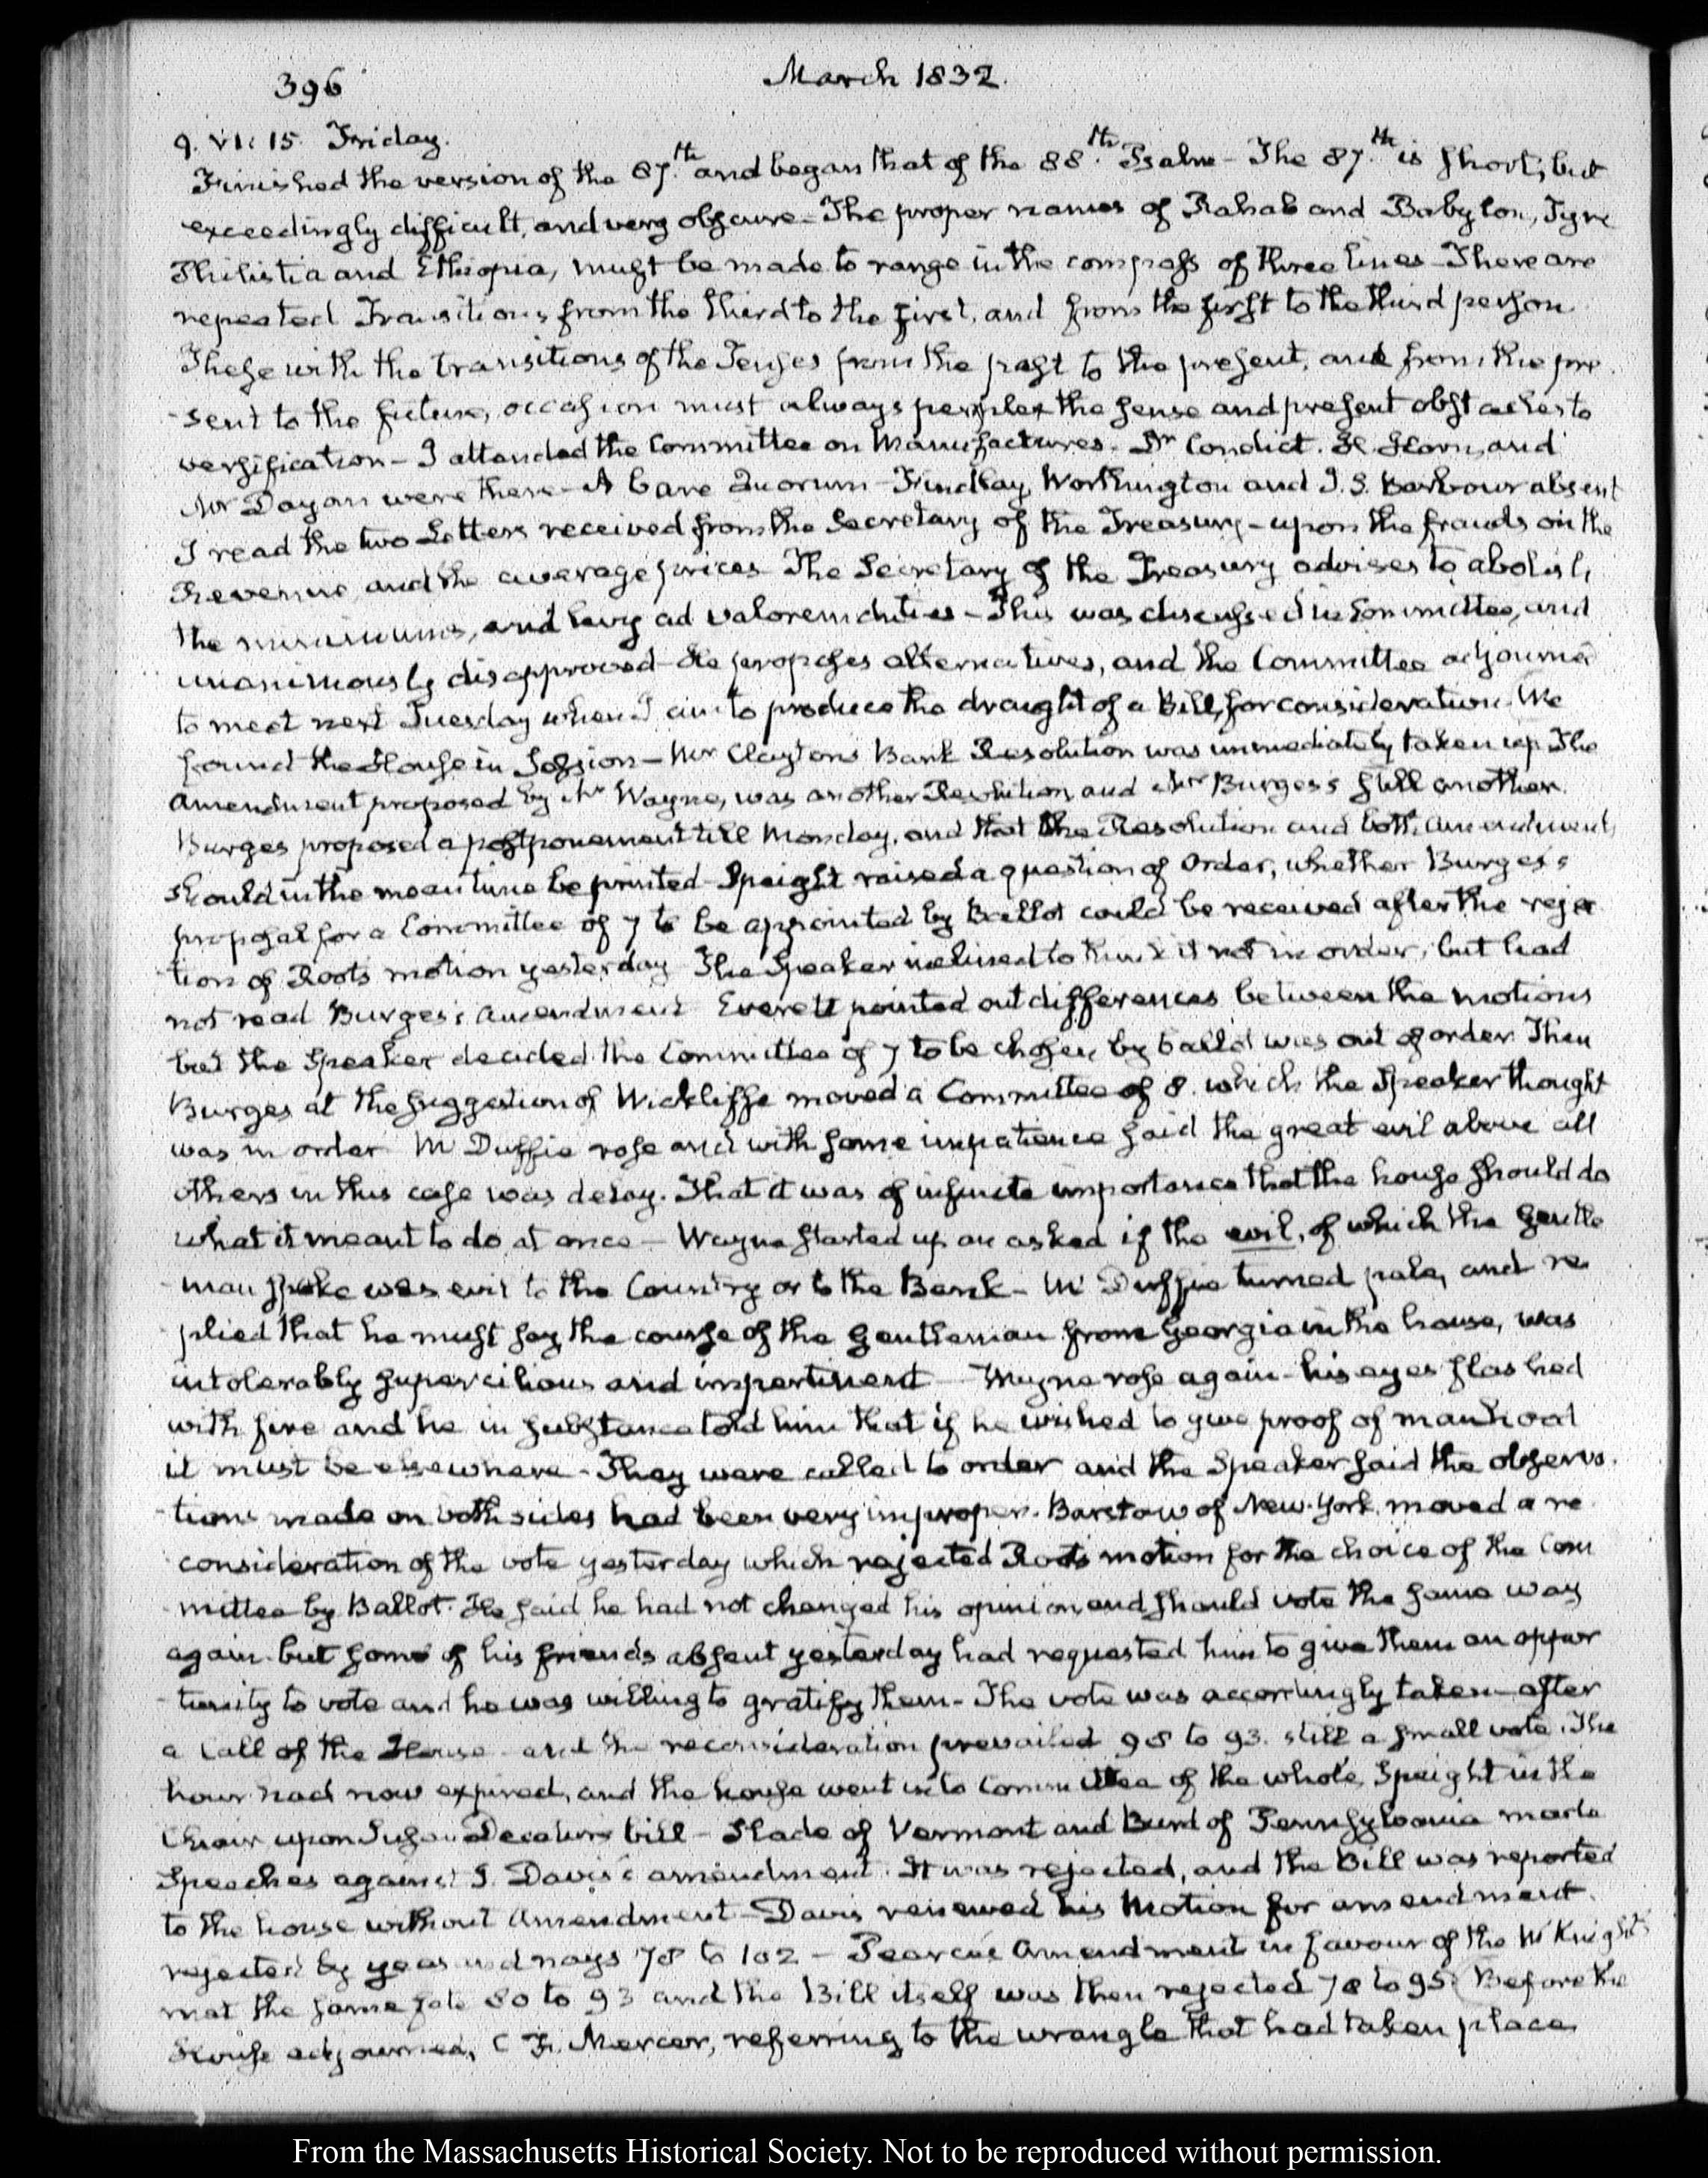 396
March 1832.
9. VI: 15. Friday.
Finished the version of the 87.th and began that of the 88.th Psalm - The 87.th is short, but
exceedingly difficult, and very obscure - The proper names of Rahab and Babylon, Tyre
Philistia and Ethiopia, must be made to range in the compass of three lines - There are
repeated Transitions from the third to the first, and from the first to the third person
These with the transitions of the Tenses from the past to the present, and from the pre
-sent to the future, occasion must always perplex the sense and present obstacles to
versification - I attended the Committee on Manufactures. Dr Condict. H. Horn, and
Mr Dayan were there - A bare Quorum - Findlay, Worthington and J. S. Barbour absent
I read the two Letters received from the Secretary of the Treasury - upon the frauds on the
Revenue, and the average prices The Secretary of the Treasury advises to abolish
the minimums, and levy ad valorem duties - This was discussed in Committee, and
unanimously disapproved - He proposes alternatives, and the Committee adjourned
to meet next Tuesday when I am to produce the draught of a Bill, for consideration. We
found the House in Session - Mr Clayton's Bank Resolution was immediately taken up. The
amendment proposed by Mr Wayne, was another Resolution, and Mr Burges's still another.
Burges proposed a postponement till Monday, and that the Resolution and both amendments
should in the meantime be printed - Speight raised a question of Order, whether Burges's
proposal for a Committee of 7 to be appointed by Ballot could be received after the rejec
tion of Roots motion yesterday The Speaker inclined to think it not in order, but had
not read Burges's amendment Everett pointed out differences between the motions
but the Speaker decided the Committee of 7 to be chosen by ballot was out of order. Then
Burges at the suggestion of Wickliffe moved a Committee of 8. which the Speaker thought
was in order McDuffie rose and with some impatience said the great evil above all
others in this case was delay. That it was of infinite importance that the house should do
what it meant to do at once - Wayne started up an asked if the evil, of which the Gentle
-man spoke was evil to the Country or to the Bank - McDuffie turned pale, and re
plied that he must say the course of the Gentleman from Georgia in the house, was
intolerably supercilious and impertinent - Wayne rose again - his eyes flashed
with fire and he in substance told him that if he wished to give proof of manhood
it must be elsewhere - They were called to order and the Speaker said the observa-
-tions made on both sides had been very improper. Barstow of New-York moved a re
consideration of the vote yesterday which rejected Roots motion for the choice of the Com
-mittee by Ballot. He said he had not changed his opinion, and should vote the same way
again. but some of his friends absent yesterday had requested him to give them an oppor
-tunity to vote and he was willing to gratify them - The vote was accordingly taken - after
a Call of the House and the reconsideration prevailed 98 to 93. still a small vote. The
hour had now expired, and the house went into Committee of the whole, Speight in the
Chair upon Susan Decatur's bill - Slade of Vermont and Burd of Pennsylvania made
Speeches against J. Davis's amendment. It was rejected, and the Bill was reported
to the house without Amendment - Davis renewed his Motion for amendment.
rejected by yeas and nays 78 to 102 - Pearce's Amendment in favour of the McKnights
met the same fate 80 to 93 and the Bill itself was then rejected 78 to 95. Before the
House adjourned, C F. Mercer, referring to the wrangle that had taken place
From the Massachusetts Historical Society. Not to be reproduced without permission.